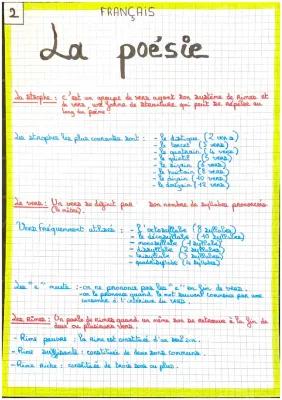 2
FRANÇAIS
La poésie
La strophe : c'est un groupe de vers ayant son système de rimes et
de vers, une forme de structure qui peut se répéter au
long du poème.
Les strophes les plus courantes sont : - le distique (2 vers)
- le tercet (3 vers)
- le quatrain (4 vers)
- le quintil (5 vers)
- le sizain (6 vers)
- le huitain (8 vers)
- le dizain (10 vers)
- le douzain (12 vers)
Le vers : Un vers se définit par son nombre de syllabes prononcées
(le mètre).
Vers fréquemment utilisés : - l'octosyllabe (8 syllabes)
- le décasyllabe (10 syllabes)
- monosyllabe (1 syllabe)
- dissyllabe (2 syllabes)
- trisyllabe (3 syllabes)
- quadrisyllabe (4 syllabes)
Les "e" muets : - on ne prononce pas les "e" en fin de vers.
- on le prononce quand le mot suivant commence par une
consonne à l'intérieur du vers.
Les rimes : On parle de rimes quand un même son se retrouve à la fin de
deux ou plusieurs vers.
- Rime pauvre : la rime est constituée d'un seul son.
- Rime suffisante : constituée de deux sons communs.
- Rime riche : constituée de trois sons ou plus.